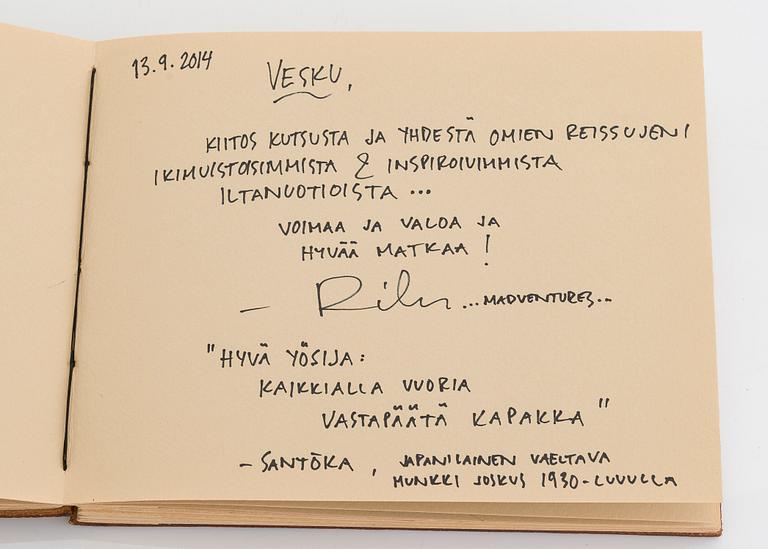 13.9.2014
VESKU,
KIITOS KUTSUSTA JA YHDESTÄ OMIEN REISSUJENI
IKIMUISTOISIMMISTA & INSPIROIVIMMISTA
ILTANUOTIOISTA ...
VOIMAA JA VALOA JA
HYVÄÄ MATKAA !
– Riku ...MADVENTURES...
"HYVÄ YÖSIJA:
KAIKKIALLA VUORIA
VASTAPÄÄTÄ KAPAKKA"
– SANTŌKA, JAPANILAINEN VAELTAVA
MUNKKI JOSKUS 1930-LUVULLA